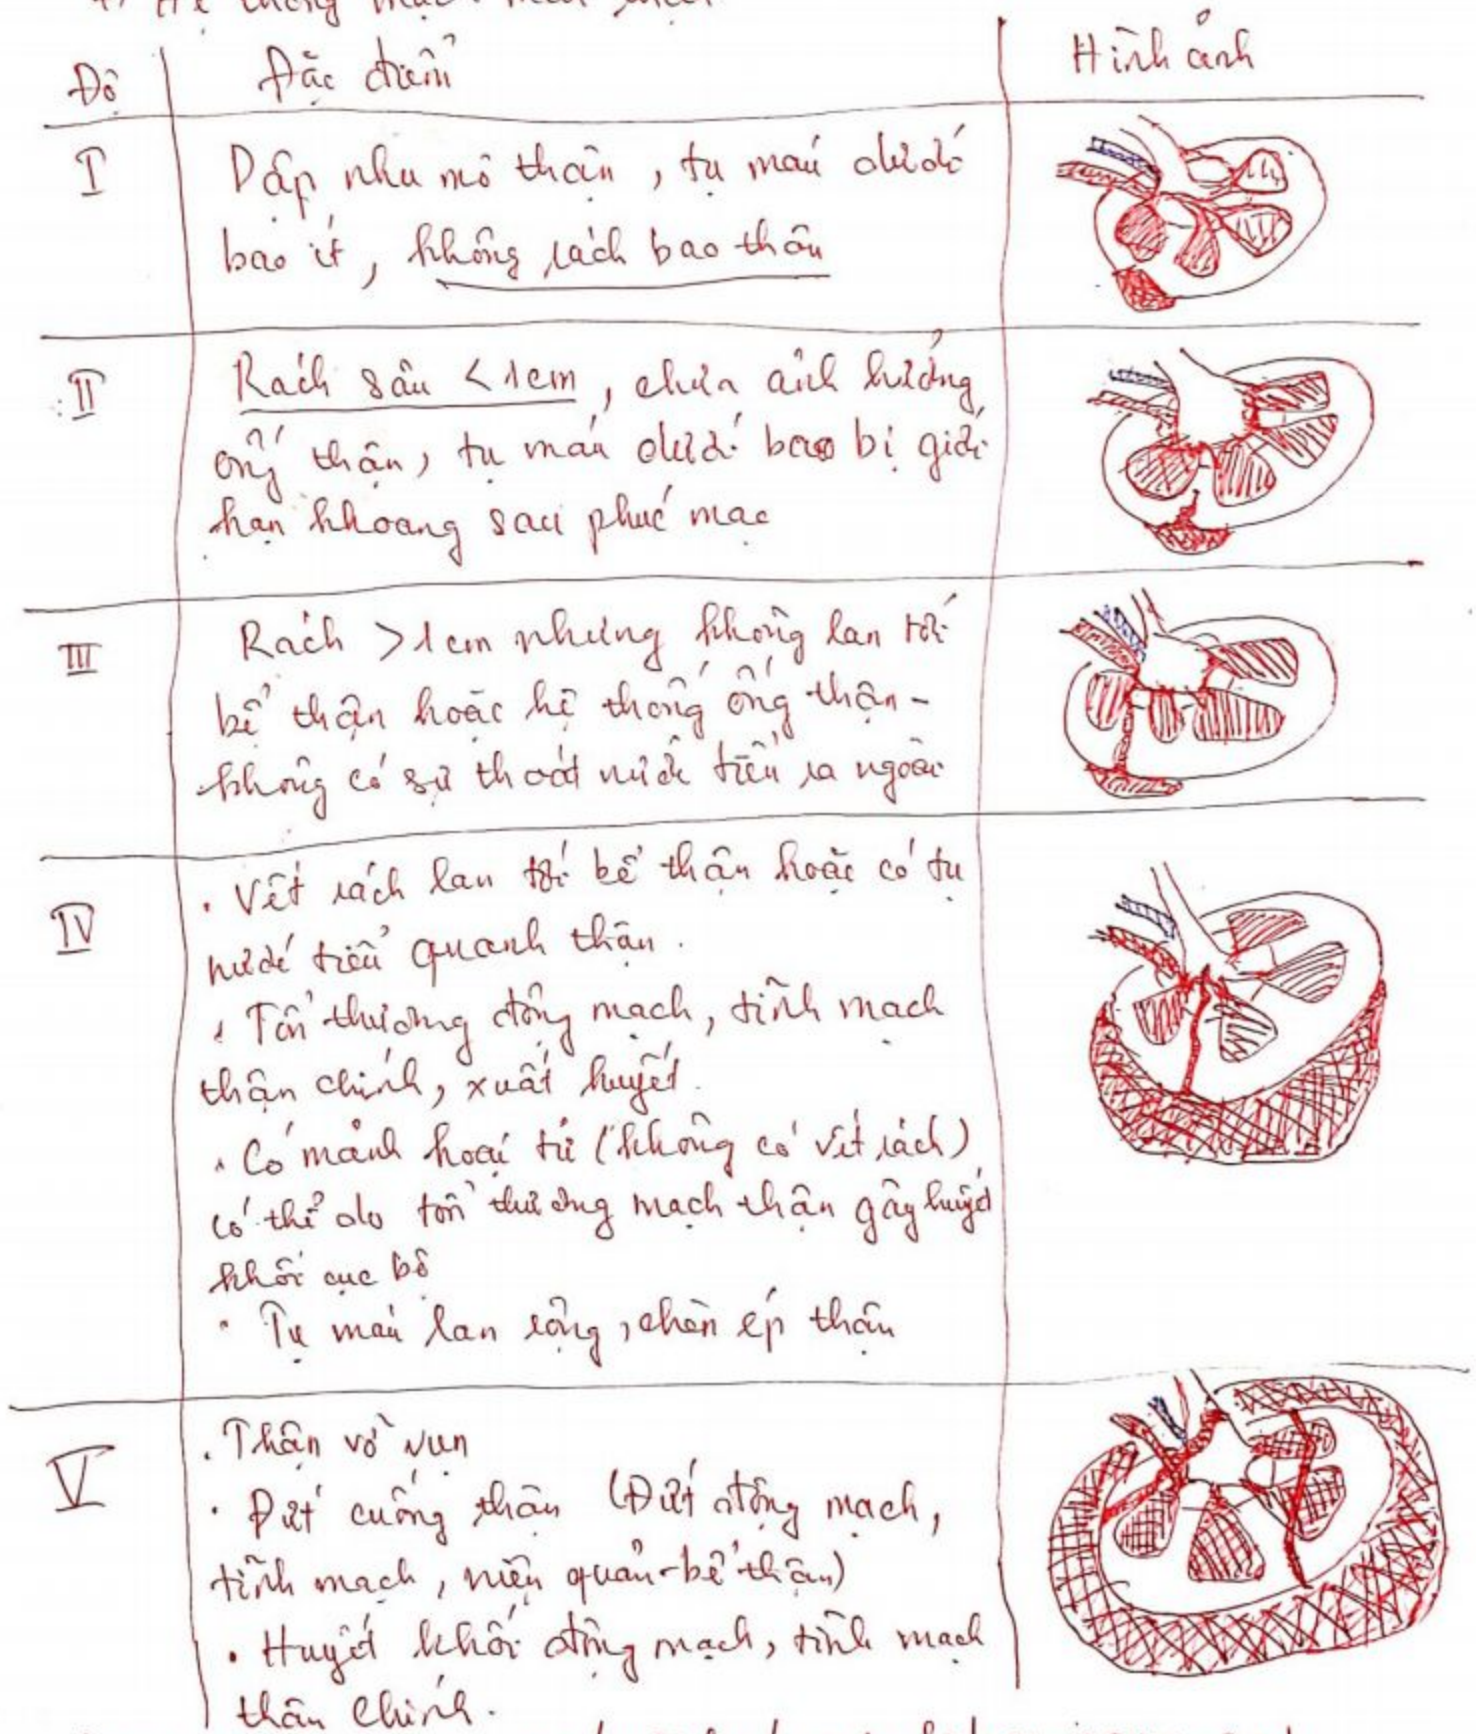 Độ Đặc điểm Hình ảnh
I Dập nhu mô thận, tụ máu dưới
bao ít, không rách bao thận
II Rách sâu <1cm, chưa ảnh hưởng
ống thận, tụ máu dưới bao bị giới
hạn khoang sau phúc mạc
III Rách >1cm nhưng không lan tới
bể thận hoặc hệ thống ống thận -
không có sự thoát nước tiểu ra ngoài
IV
. Vết rách lan tới bể thận hoặc có tụ
nước tiểu quanh thận.
. Tổn thương động mạch, tĩnh mạch
thận chính, xuất huyết.
. Có mảnh hoại tử (không có vết rách)
có thể do tổn thương mạch thận gây huyết
khối cục bộ
. Tụ máu lan rộng, chèn ép thận
V
. Thận vỡ vụn
. Đứt cuống thận (Đứt động mạch,
tĩnh mạch, niệu quản-bể thận)
. Huyết khối động mạch, tĩnh mạch
thận chính.